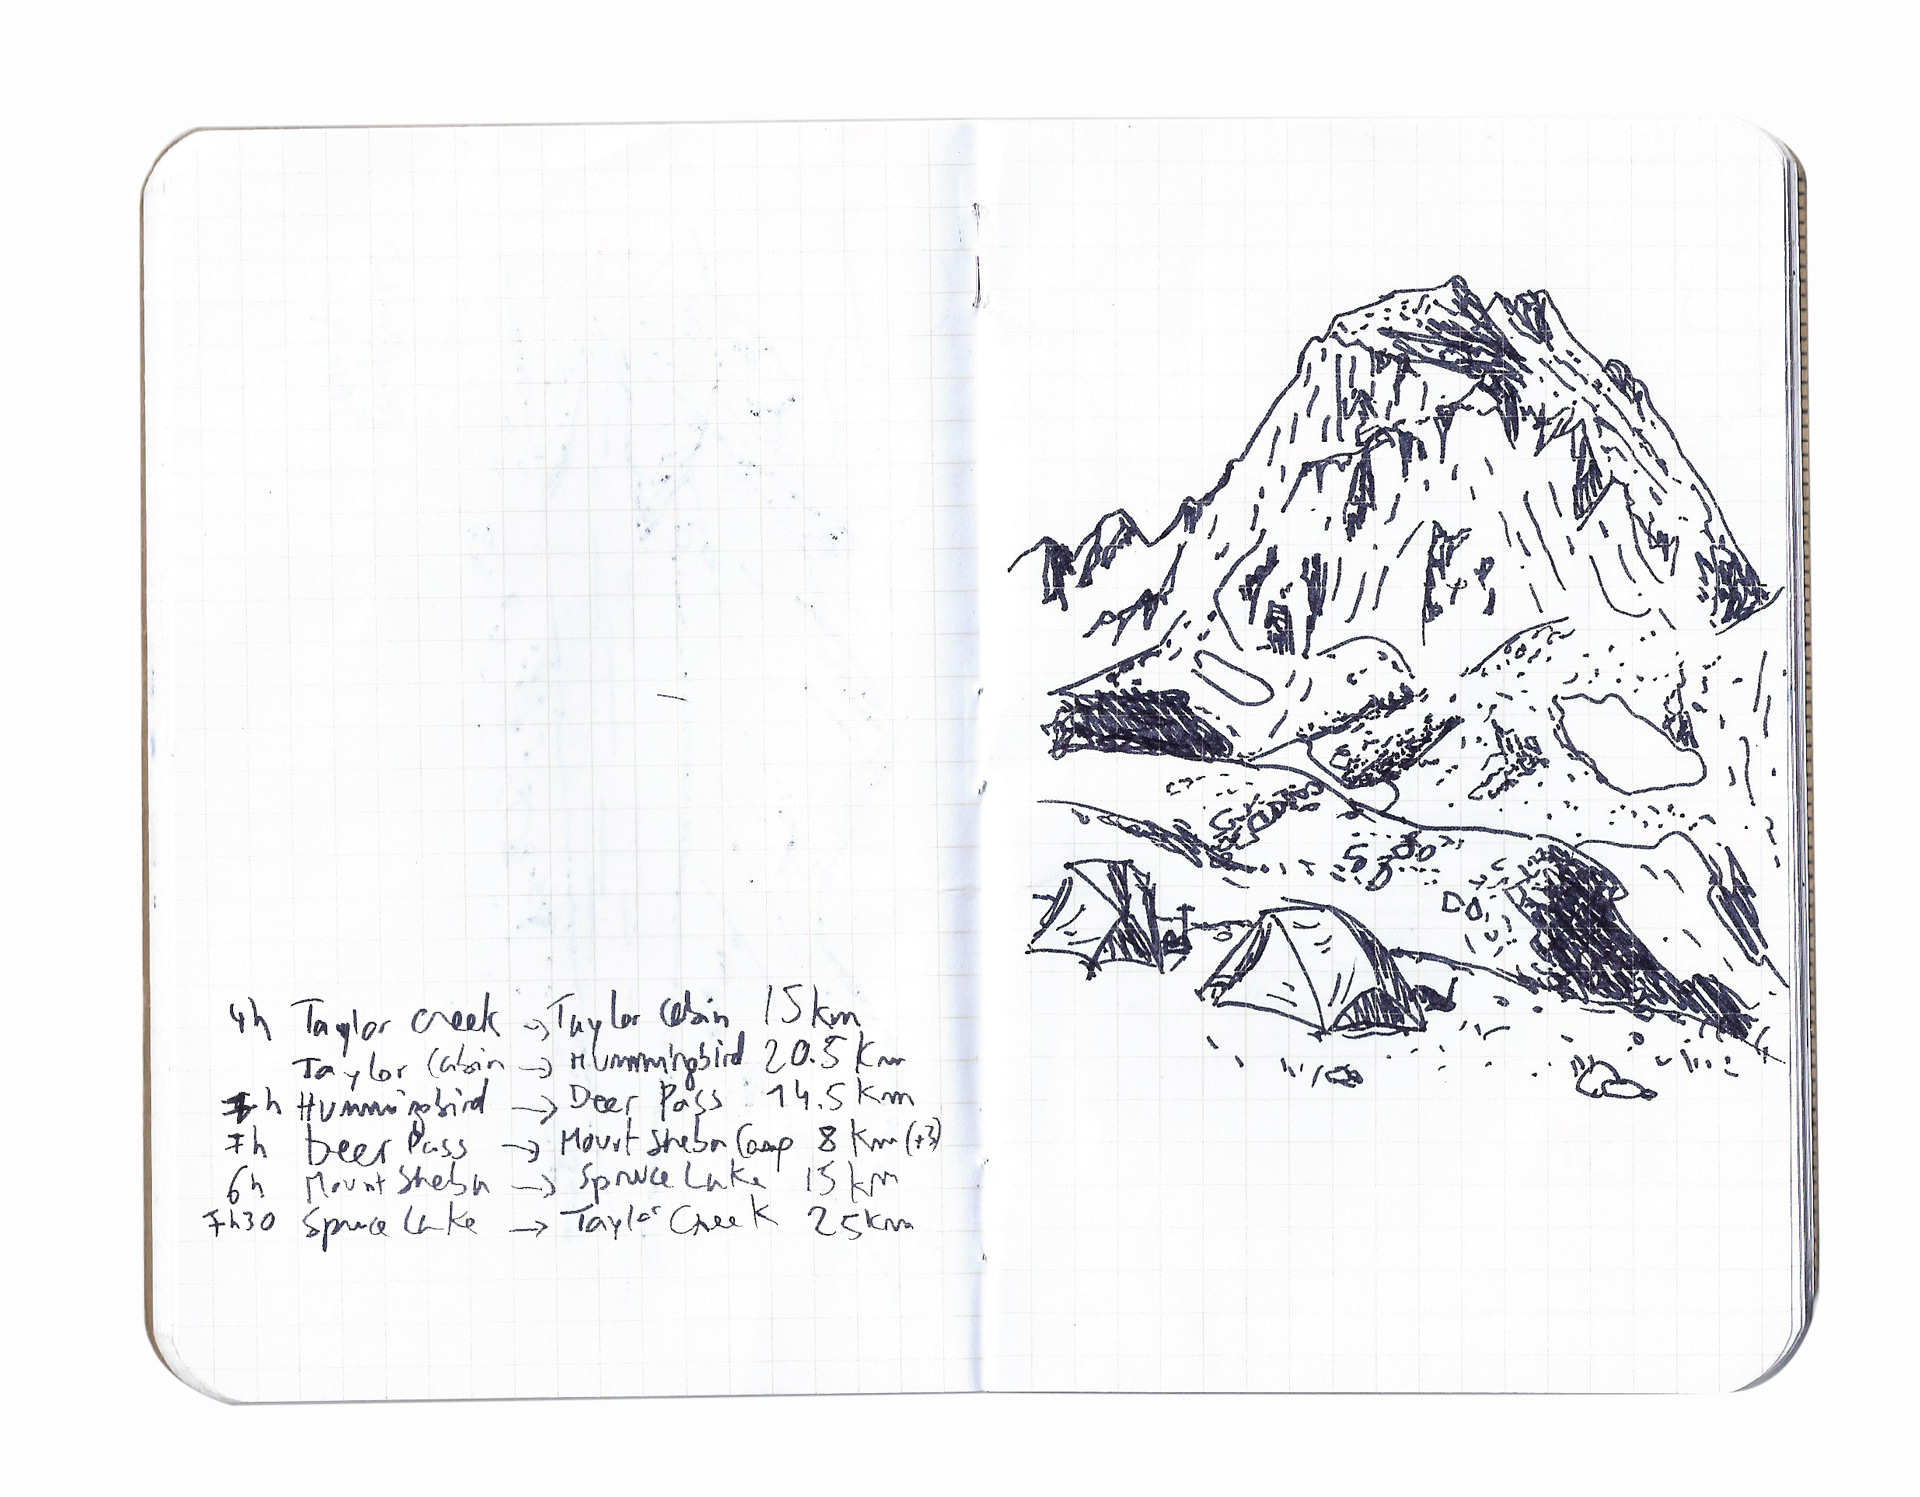 4h Taylor Creek → Taylor Cabin 15km
Taylor Cabin → Hummingbird 20.5 Km
h Hummingbird → Deer Pass 14.5 Km
7h Deer Pass → Mount Sheba Camp 8 Km (+3)
6h Mount Sheba → Spruce Lake 15 km
7h30 Spruce Lake → Taylor Creek 25km